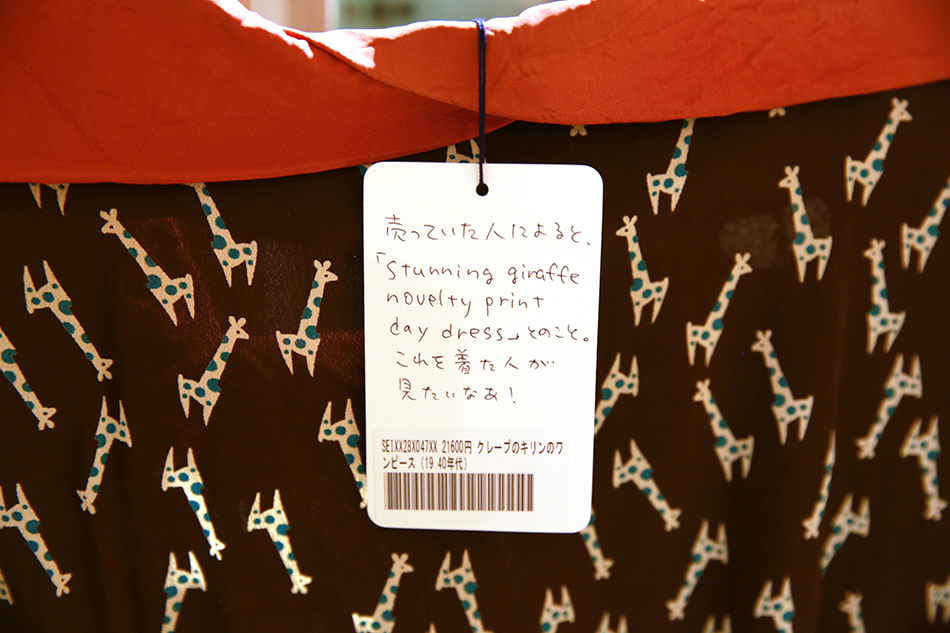 売っていた人によると、
「Stunning giraffe
novelty print
day dress」とのこと。
これを着た人が
見たいなあ！
SEIXX28X047XX 21600円 クレープのキリンのワ
ンピース (19 40年代)